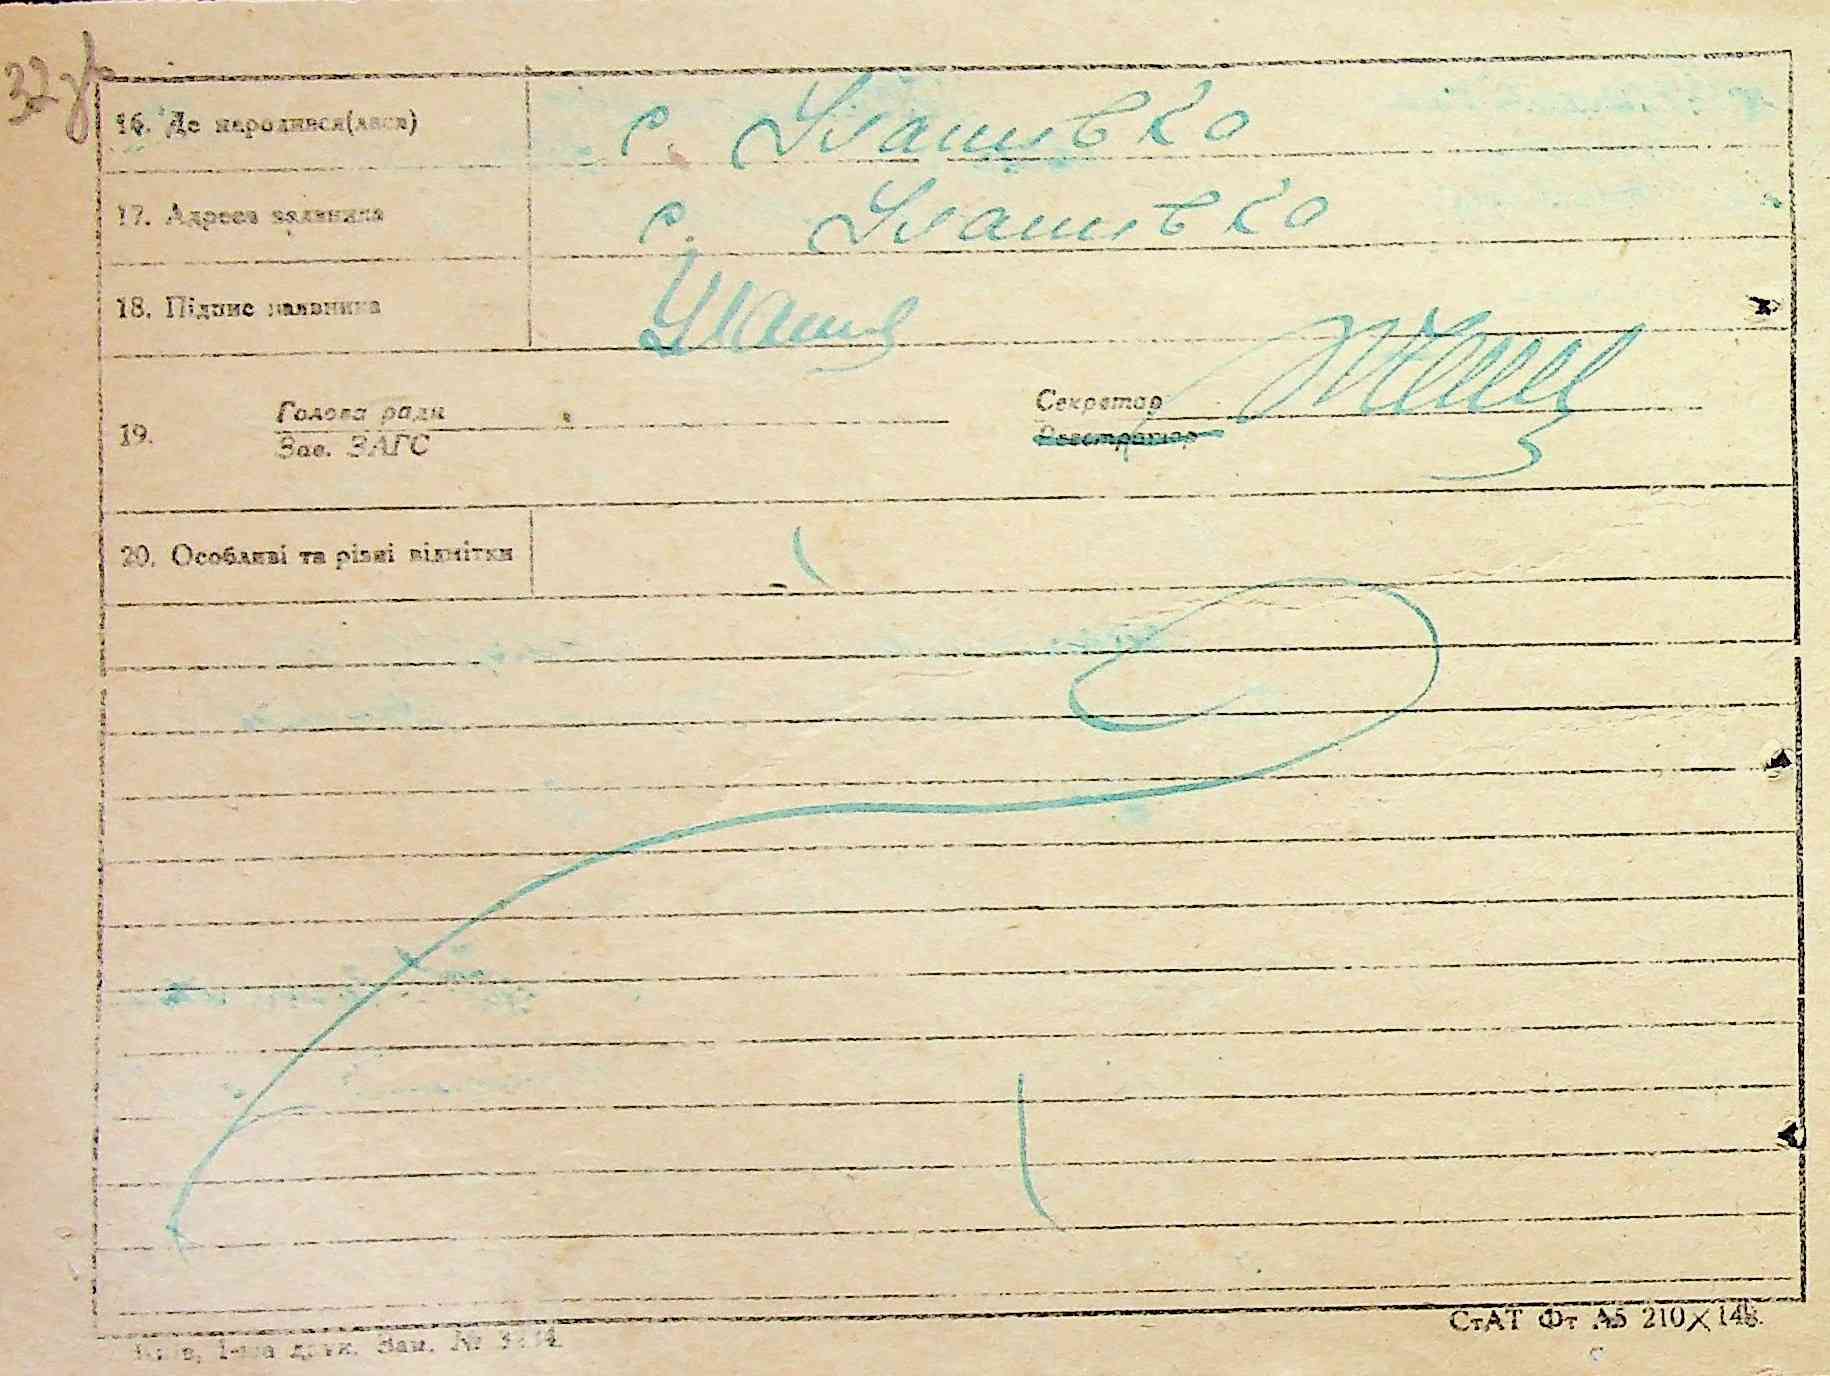 32 зв
16. Де народився(лася) с. Уланивко
17. Адреса заявника с. Уланивко
18. Підпис заявника
19. Голова ради Секретар
Зав. ЗАГС Реєстратор
20. Особливі та різні відмітки
СтАТ Фт А5 210×148.
Київ, 1-ша друк. Зам. №